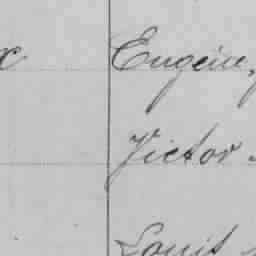 x Eugène,
Victor
Louis